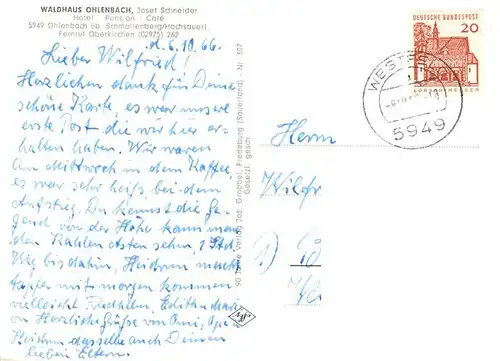 WALDHAUS OHLENBACH, Josef Schneider
Hotel Pension Café
5949 Ohlenbach üb. Schmallenberg/Hochsauerl.
Fernruf Oberkirchen (02975) 262
d. 6.10.66.
Lieber Wilfried!
Herzlichen dank für Deine
schöne Karte es war unsere
erste Post die wir hier er-
halten haben. Wir waren
am Mittwoch in dem Kaffee,
es war sehr heiß bei dem
Aufstieg. Du kennst die Ge-
gend von der Höhe kann man
den Kahlen Asten sehn, 1 Std.
Weg bis dahin, Heidrun macht
tapfer mit morgen kommen
vielleicht Edith
Herzliche Grüße von Omi,
Heidrun dasselbe auch Deinen
lieben Eltern.
90 Jahre Verlag Jos. Grobbel, Fredeburg (Sauerland) Nr. 507
Gesetzl. gesch.
DEUTSCHE BUNDESPOST
20
LORSCH HESSEN
5949
Herrn
Wilfr